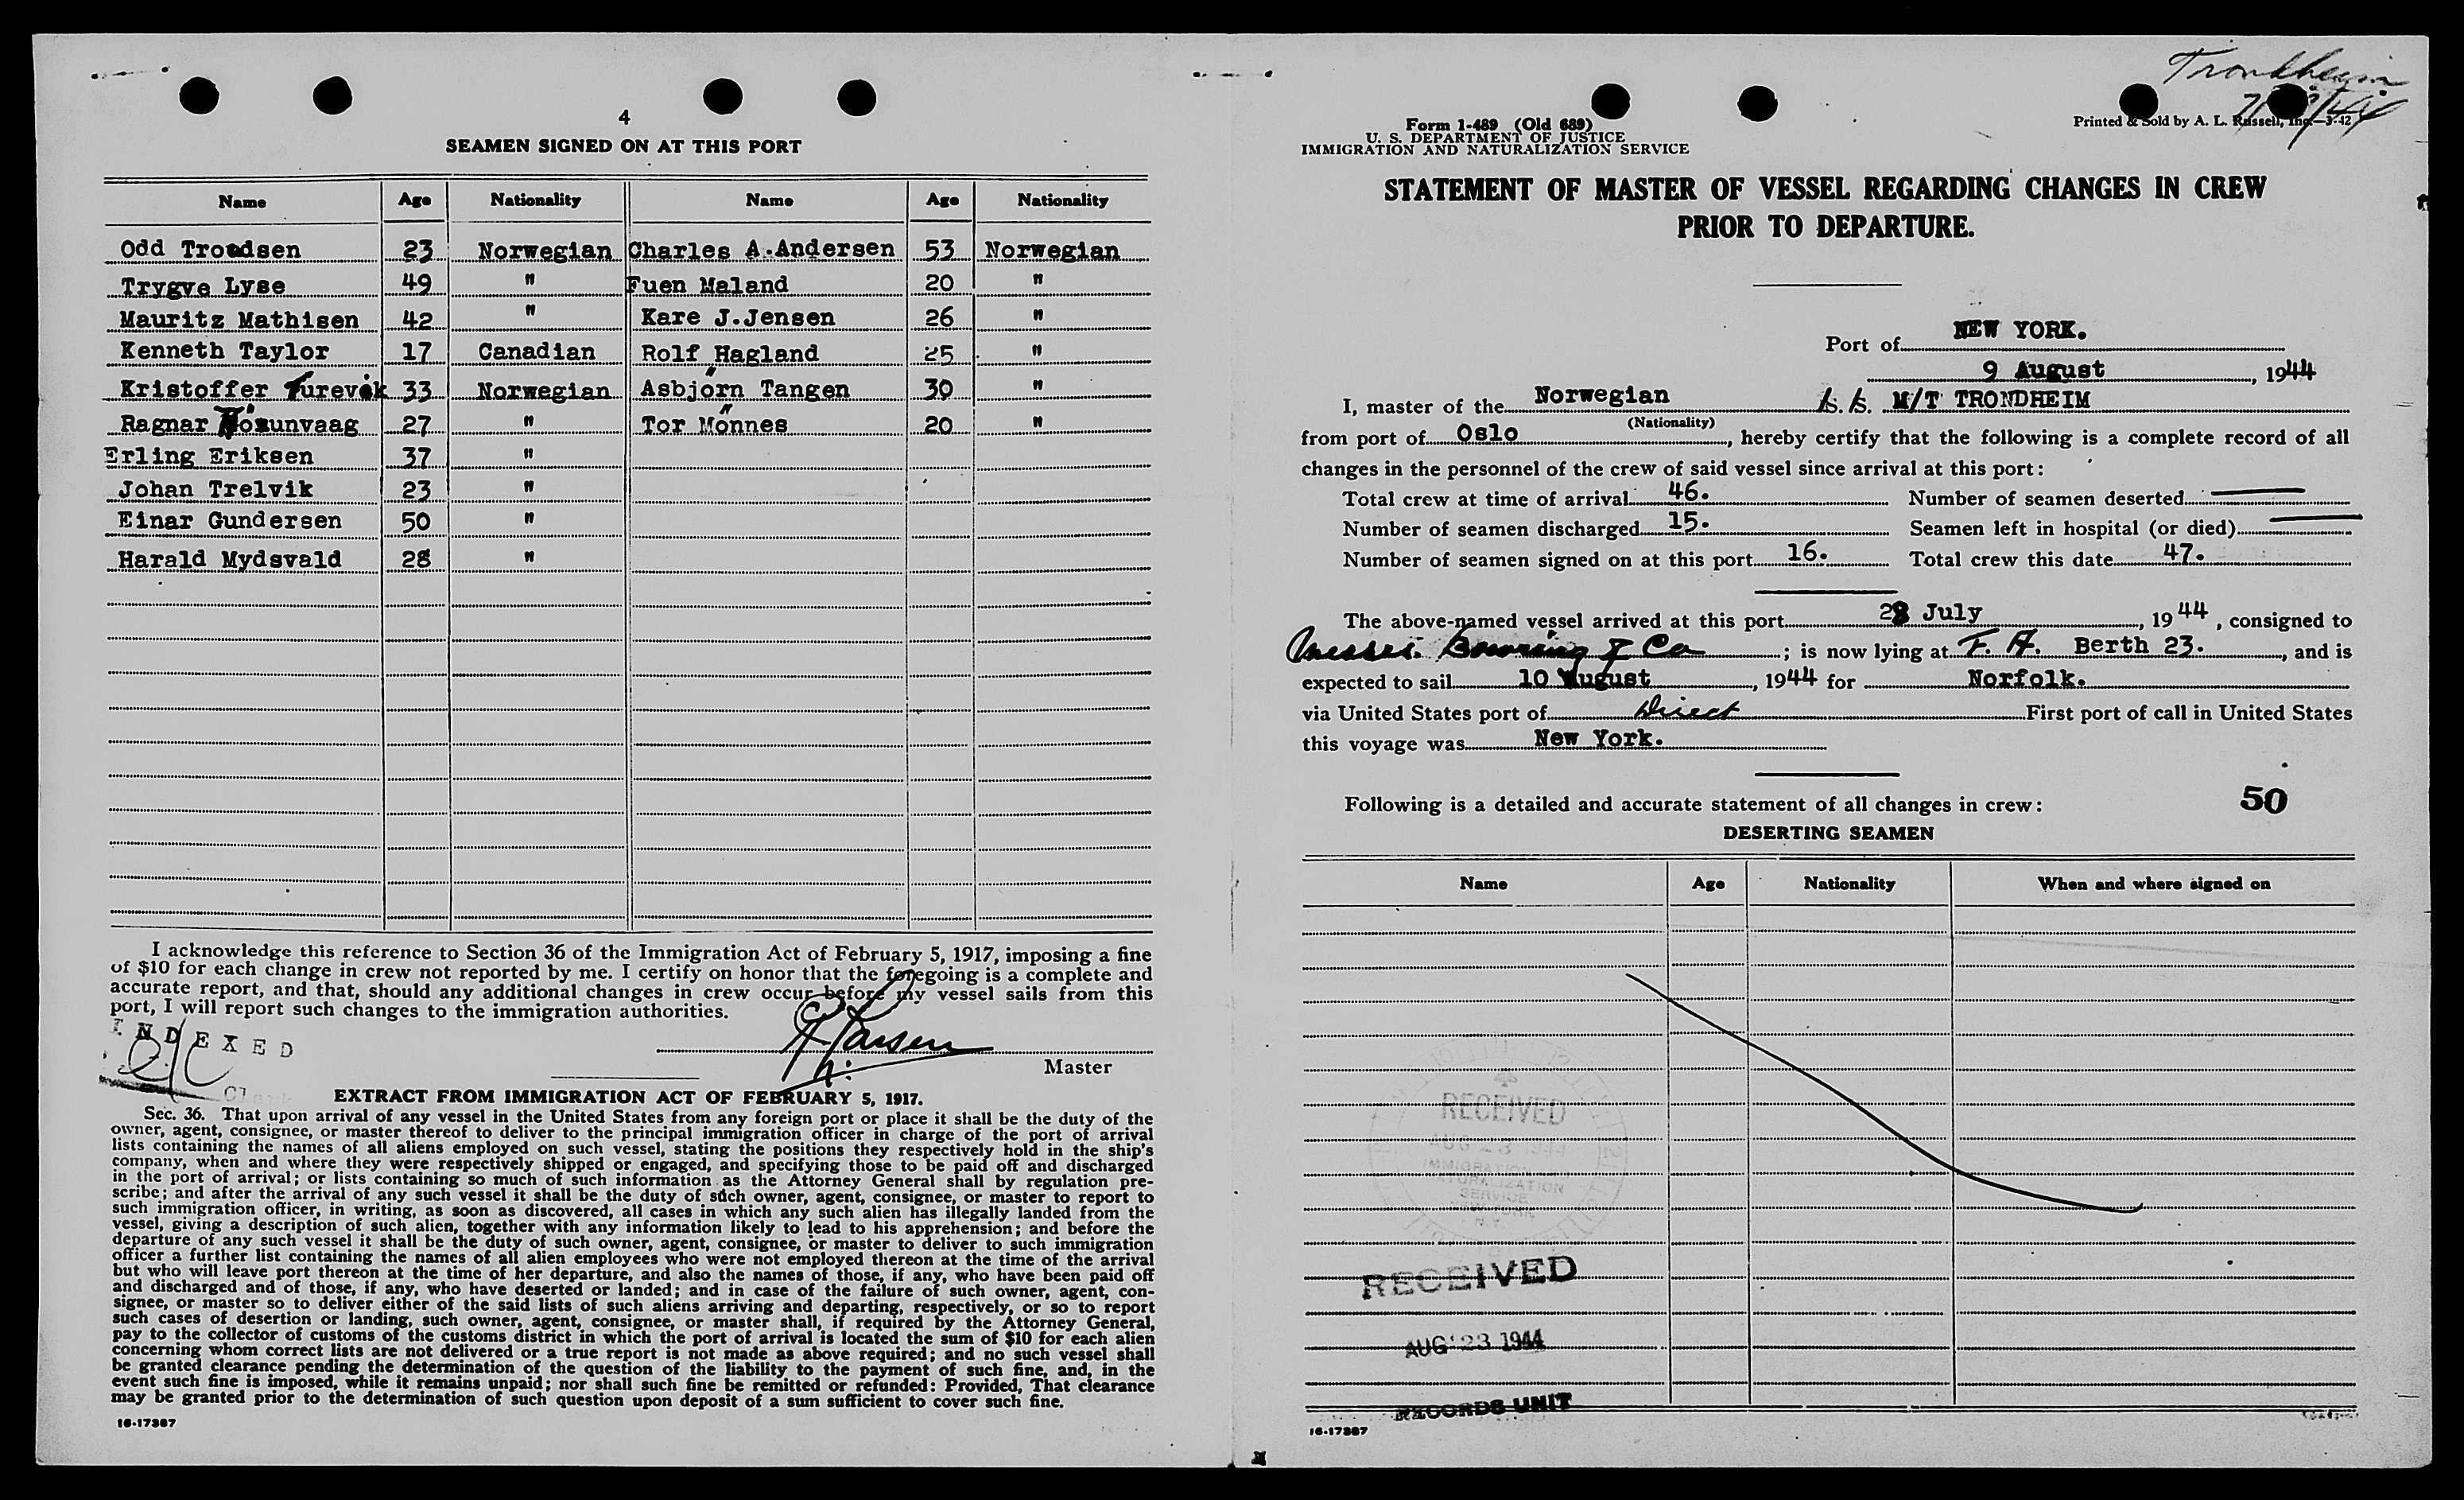 4
SEAMEN SIGNED ON AT THIS PORT
Name Age Nationality Name Age Nationality
Odd Trondsen 23 Norwegian Charles A.Andersen 53 Norwegian
Trygve Lyse 49 " Fuen Maland 20 "
Mauritz Mathisen 42 " Kare J.Jensen 26 "
Kenneth Taylor 17 Canadian Rolf Hagland 25 "
Kristoffer 33 Norwegian Asbjörn Tangen 30 "
Ragnar 27 " Tor Mönnes 20 "
Erling Eriksen 37 "
Johan Trelvik 23 "
Einar Gundersen 50 "
Harald Mydsvald 28 "
I acknowledge this reference to Section 36 of the Immigration Act of February 5, 1917, imposing a fine
of $10 for each change in crew not reported by me. I certify on honor that the foregoing is a complete and
accurate report, and that, should any additional changes in crew occur before my vessel sails from this
port, I will report such changes to the immigration authorities.
INDEXED
Larsen
Master
Clerk
EXTRACT FROM IMMIGRATION ACT OF FEBRUARY 5, 1917.
Sec. 36. That upon arrival of any vessel in the United States from any foreign port or place it shall be the duty of the
owner, agent, consignee, or master thereof to deliver to the principal immigration officer in charge of the port of arrival
lists containing the names of all aliens employed on such vessel, stating the positions they respectively hold in the ship's
company, when and where they were respectively shipped or engaged, and specifying those to be paid off and discharged
in the port of arrival; or lists containing so much of such information as the Attorney General shall by regulation pre-
scribe; and after the arrival of any such vessel it shall be the duty of such owner, agent, consignee, or master to report to
such immigration officer, in writing, as soon as discovered, all cases in which any such alien has illegally landed from the
vessel, giving a description of such alien, together with any information likely to lead to his apprehension; and before the
departure of any such vessel it shall be the duty of such owner, agent, consignee, or master to deliver to such immigration
officer a further list containing the names of all alien employees who were not employed thereon at the time of the arrival
but who will leave port thereon at the time of her departure, and also the names of those, if any, who have been paid off
and discharged and of those, if any, who have deserted or landed; and in case of the failure of such owner, agent, con-
signee, or master so to deliver either of the said lists of such aliens arriving and departing, respectively, or so to report
such cases of desertion or landing, such owner, agent, consignee, or master shall, if required by the Attorney General,
pay to the collector of customs of the customs district in which the port of arrival is located the sum of $10 for each alien
concerning whom correct lists are not delivered or a true report is not made as above required; and no such vessel shall
be granted clearance pending the determination of the question of the liability to the payment of such fine, and, in the
event such fine is imposed, while it remains unpaid; nor shall such fine be remitted or refunded: Provided, That clearance
may be granted prior to the determination of such question upon deposit of a sum sufficient to cover such fine.
16-17387
Trondheim
Form I-489 (Old 689)
U. S. DEPARTMENT OF JUSTICE
IMMIGRATION AND NATURALIZATION SERVICE
Printed & Sold by A. L. Russell, Inc.—3-42
STATEMENT OF MASTER OF VESSEL REGARDING CHANGES IN CREW
PRIOR TO DEPARTURE.
Port of NEW YORK.
9 August, 1944
I, master of the Norwegian S.S. M/T TRONDHEIM
(Nationality)
from port of Oslo, hereby certify that the following is a complete record of all
changes in the personnel of the crew of said vessel since arrival at this port:
Total crew at time of arrival 46. Number of seamen deserted
Number of seamen discharged 15. Seamen left in hospital (or died)
Number of seamen signed on at this port 16. Total crew this date 47.
The above-named vessel arrived at this port 28 July, 1944, consigned to
Messrs. Bowring & Co; is now lying at F. A. Berth 23., and is
expected to sail 10 August, 1944 for Norfolk.
via United States port of Direct First port of call in United States
this voyage was New York.
Following is a detailed and accurate statement of all changes in crew: 50
DESERTING SEAMEN
Name Age Nationality When and where signed on
RECEIVED
AUG 23 1944
IMMIGRATION
NATURALIZATION
SERVICE
NEW YORK
N.Y.
RECEIVED
AUG 23 1944
RECORDS UNIT
16-17387